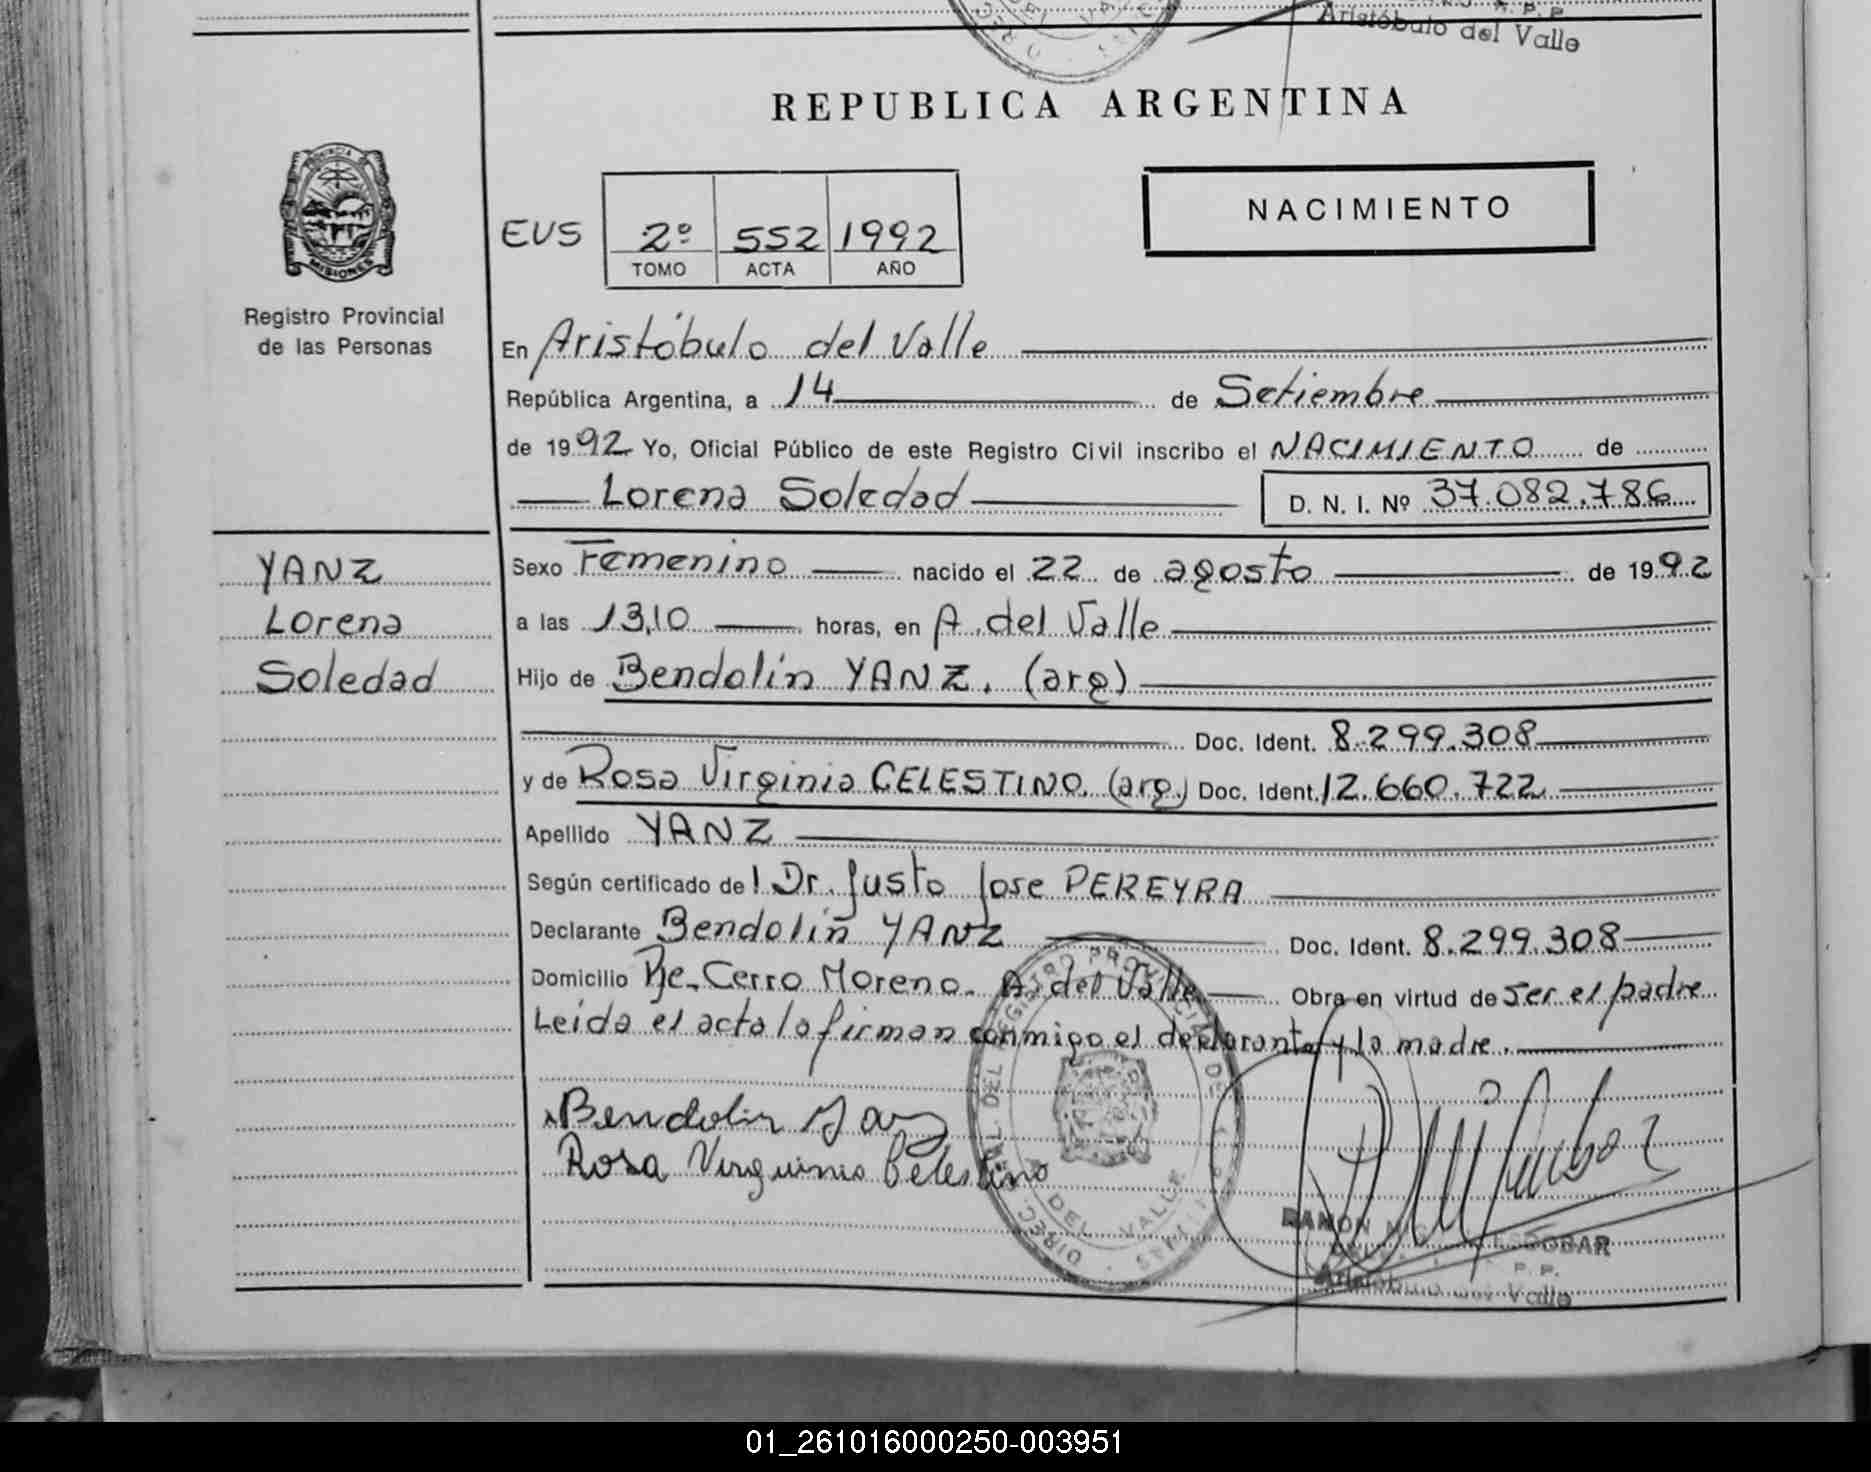 Aristóbulo del Valle
REPUBLICA ARGENTINA
PROVINCIA DE
MISIONES
Registro Provincial
de las Personas
EUS 2º 552 1992
TOMO ACTA AÑO
NACIMIENTO
En Aristóbulo del Valle
República Argentina, a 14 de Setiembre
de 1992 Yo, Oficial Público de este Registro Civil inscribo el NACIMIENTO de
Lorena Soledad D. N. I. Nº 37.082.786
YANZ
Lorena
Soledad
Sexo Femenino nacido el 22 de agosto de 1992
a las 13,10 horas, en A. del Valle
Hijo de Bendolin YANZ. (arg)
Doc. Ident. 8.299.308
y de Rosa Virginia CELESTINO. (arg.) Doc. Ident. 12.660.722
Apellido YANZ
Según certificado del Dr. Justo Jose PEREYRA
Declarante Bendolin YANZ Doc. Ident. 8.299.308
Domicilio Pje. Cerro Moreno. A. del Valle Obra en virtud de ser el padre
Leida el acta la firman conmigo el declarante y la madre.
Bendolin Yanz
Rosa Virginia Celestino
DIREC. GRAL DEL REGISTRO PROVINCIAL DE
DEL VALLE
RAMON ESCOBAR
P. P.
Aristóbulo del Valle
01_261016000250-003951